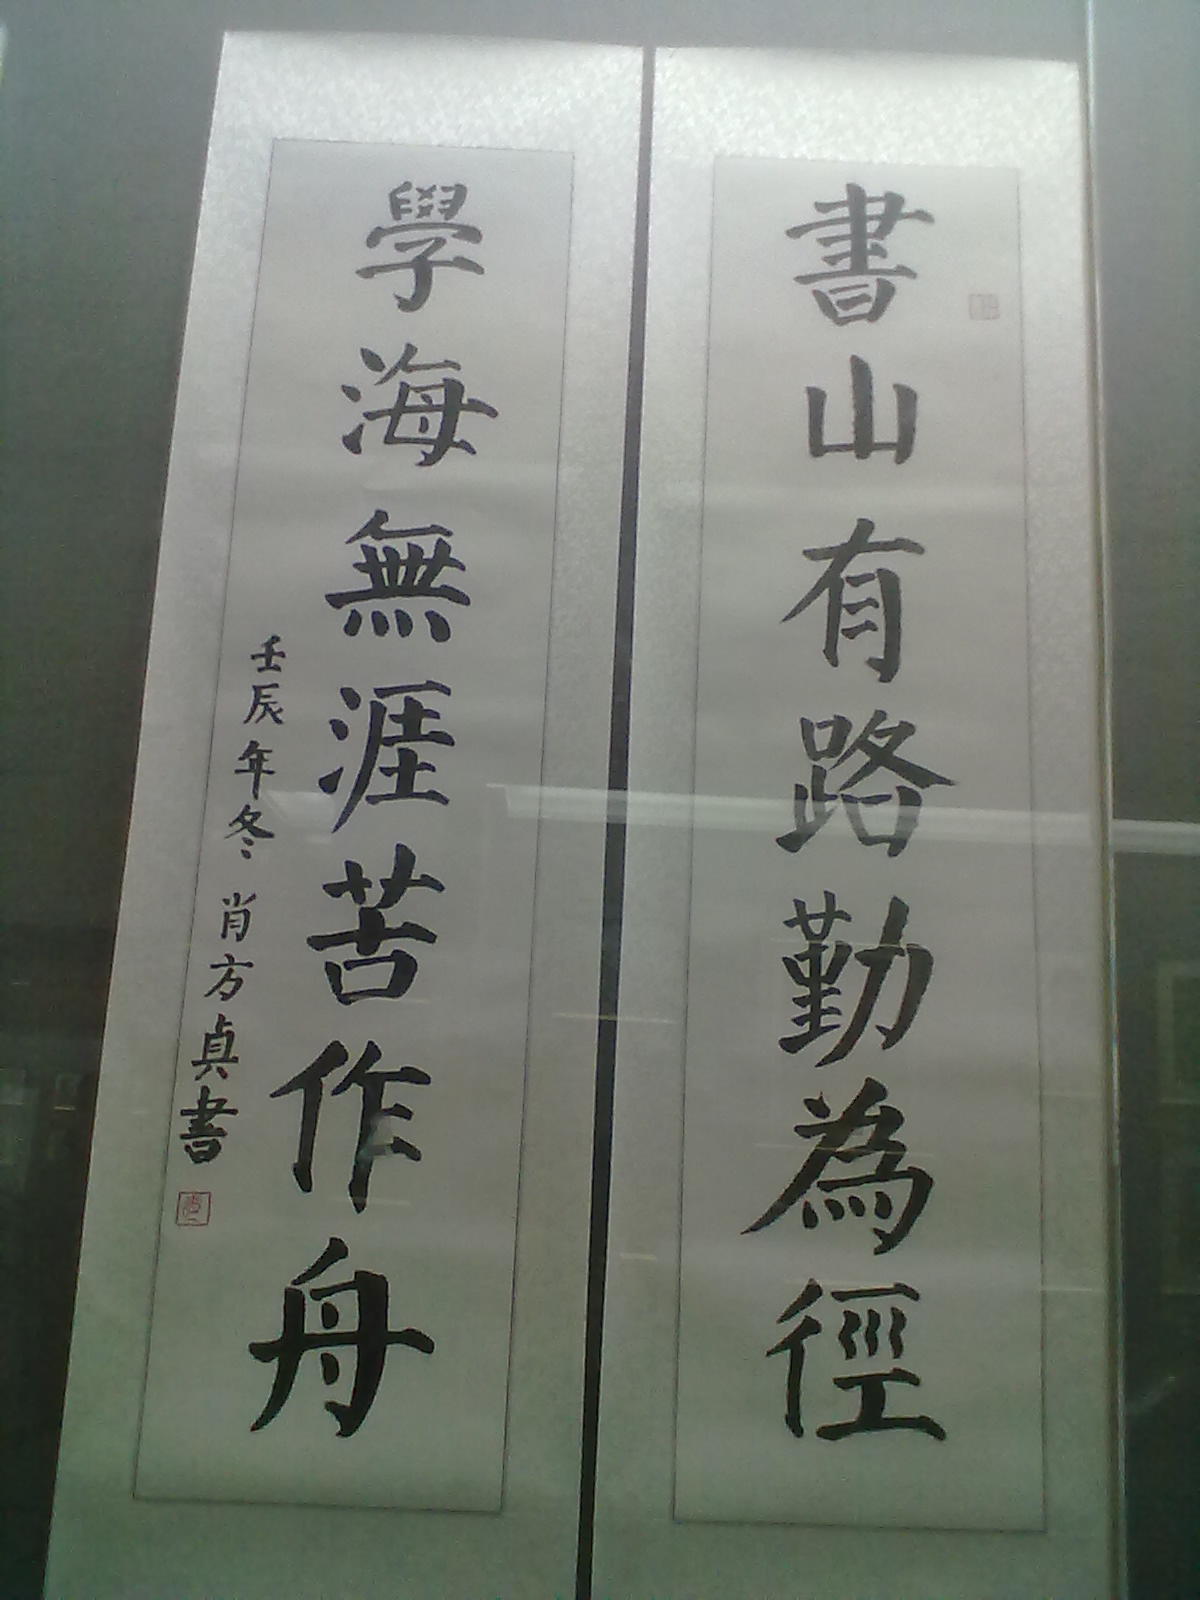 書山有路勤為徑
學海無涯苦作舟
壬辰年冬 肖方貞書